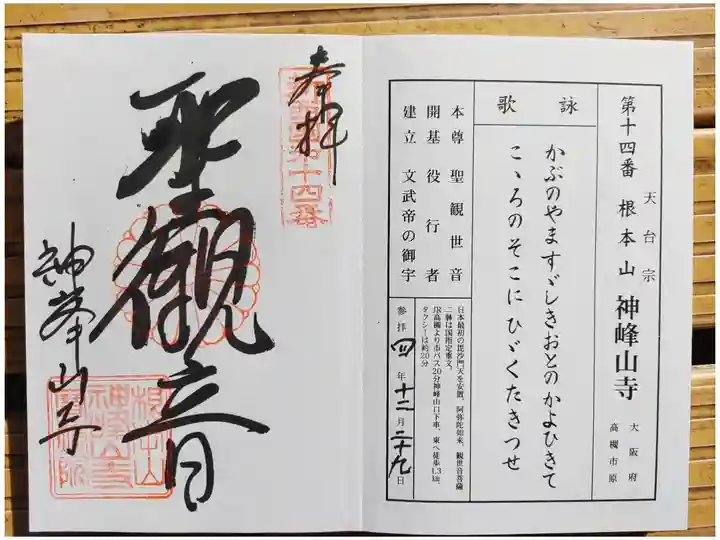 天台宗
第十四番 根本山 神峰山寺
大阪府
高槻市原
詠歌
かぶのやますゞしきおとのかよひきて
こゝろのそこにひゞくたきつせ
本尊 聖観世音
開基 役行者
建立 文武帝の御宇
日本最初の毘沙門天を安置、阿弥陀如来、観世音菩薩
二躰は国指定重文。
JR高槻より市バス20分神峰山口下車、東へ徒歩1.3km、
タクシーは約20分
参拝 四年十二月二十九日
奉拝
第十四番
聖觀音
神峯山寺